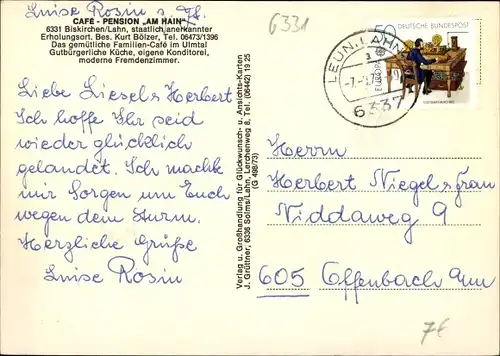 Luise Rosin
6331
CAFÉ - PENSION „AM HAIN"
6331 Biskirchen/Lahn, staatlich anerkannter
Erholungsort. Bes. Kurt Bölzer, Tel. 06473/1396
Das gemütliche Familien-Café im Ulmtal
Gutbürgerliche Küche, eigene Konditorei,
moderne Fremdenzimmer.
Liebe Liesel u Herbert
Ich hoffe Ihr seid
wieder glücklich
gelandet. Ich machte
mir Sorgen um Euch
wegen dem Sturm.
Herzliche Grüße
Luise Rosin
Verlag u. Großhandlung für Glückwunsch- u. Ansichts-Karten
J. Grüttner, 6336 Solms/Lahn, Lerchenweg 8, Tel. (06442) 19 25
(G 498/73)
50 DEUTSCHE BUNDESPOST
EUROPA
LEUN, LAHN
6337
Herrn
Herbert Niegel u Frau
Niddaweg 9
605 Offenbach
7€